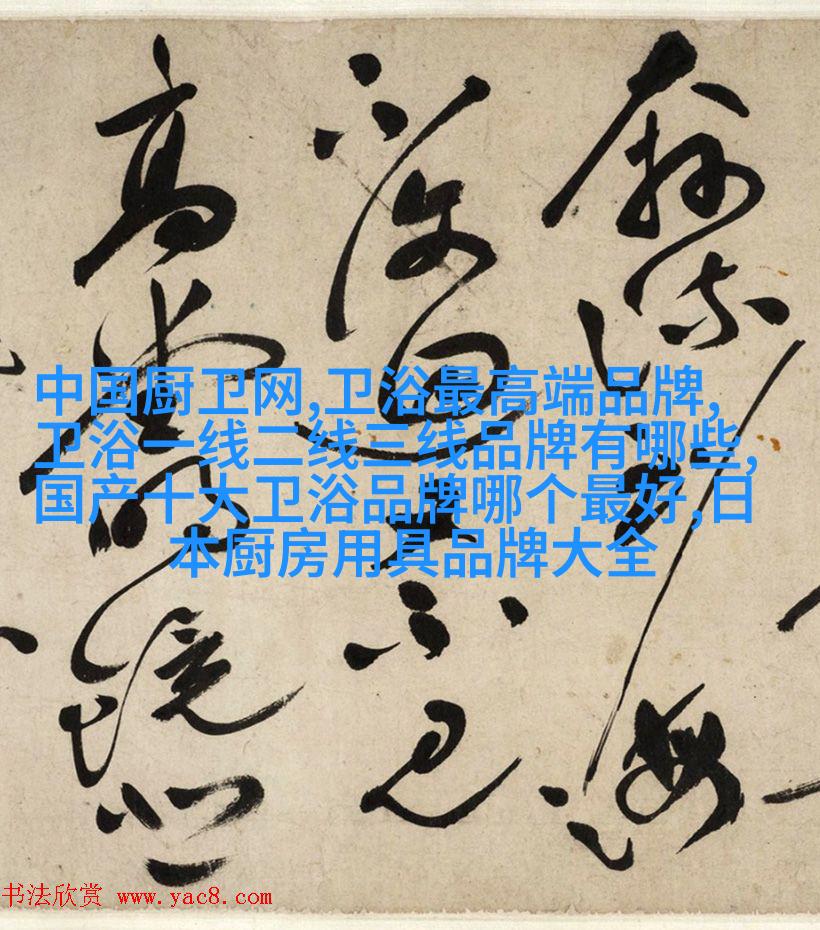 奔流到海
不復回君不見
高堂明鏡悲
中国厨卫网,卫浴最高端品牌,
卫浴一线二线三线品牌有哪些,
国产十大卫浴品牌哪个最好,日
本厨房用具品牌大全
书法欣赏 www.yac8.com